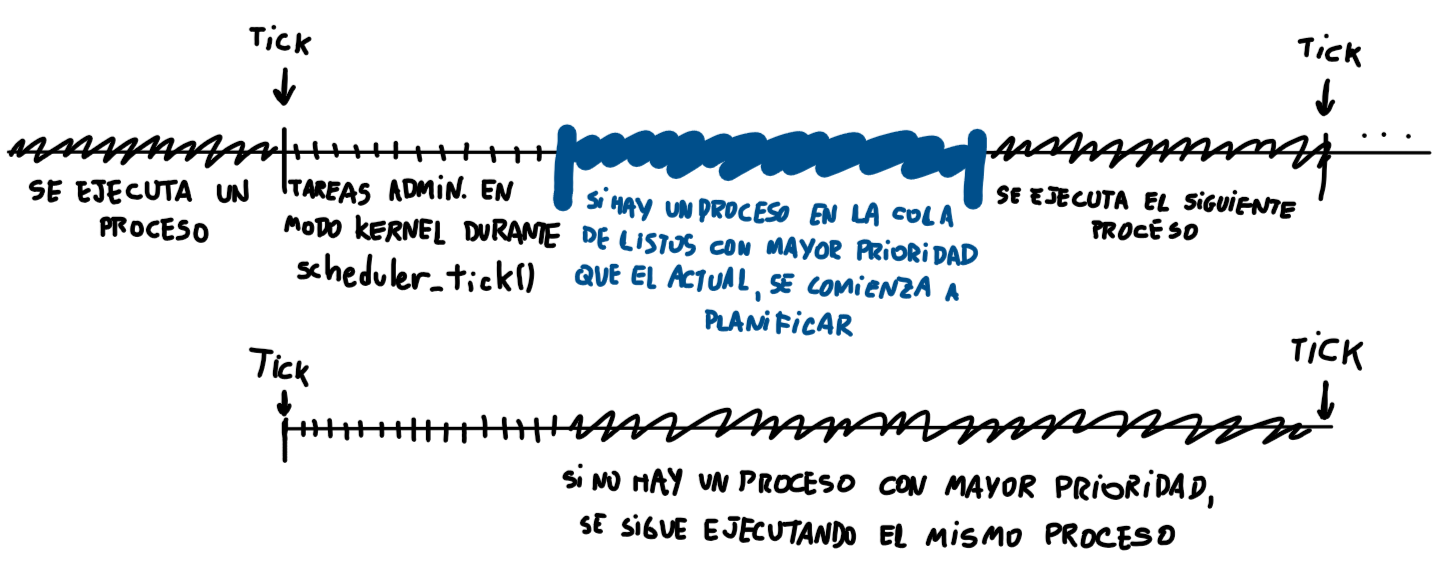 Tick
Tick
...
SE EJECUTA UN
PROCESO
TAREAS ADMIN. EN
MODO KERNEL DURANTE
scheduler_tick()
Si HAY UN PROCESO EN LA COLA
DE LISTOS CON MAYOR PRIORIDAD
QUE EL ACTUAL, SE COMIENZA A
PLANIFICAR
SE EJECUTA EL SIGUIENTE
PROCESO
Tick
TICK
Si NO HAY UN PROCESO CON MAYOR PRIORIDAD,
SE SIGUE EJECUTANDO EL MISMO PROCESO